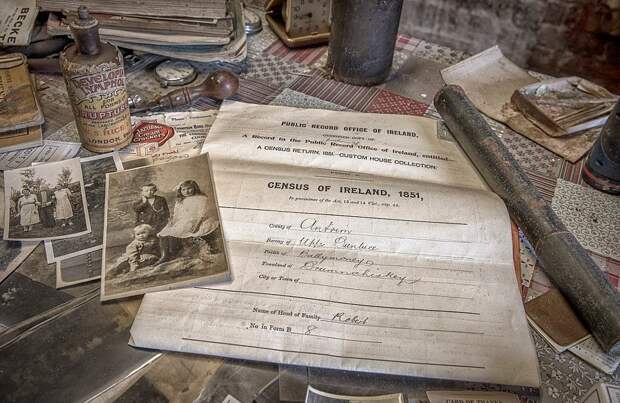 BECKE
CYCLOPÆ
LONDON.
CARD OF THANKS
PUBLIC RECORD OFFICE OF IRELAND.
CERTIFIED COPY OF
A Record in the Public Record Office of Ireland, entitled—
A CENSUS RETURN, 1851—CUSTOM HOUSE COLLECTION
CENSUS OF IRELAND, 1851,
In pursuance of the Act, 13 and 14 Vict., cap. 44.
County of Antrim
Barony of Upr. Dunluce
Parish of Ballymoney
Townland of Drumnahiskey
City or Town of
Name of Head of Family Robert
No in Form B 8